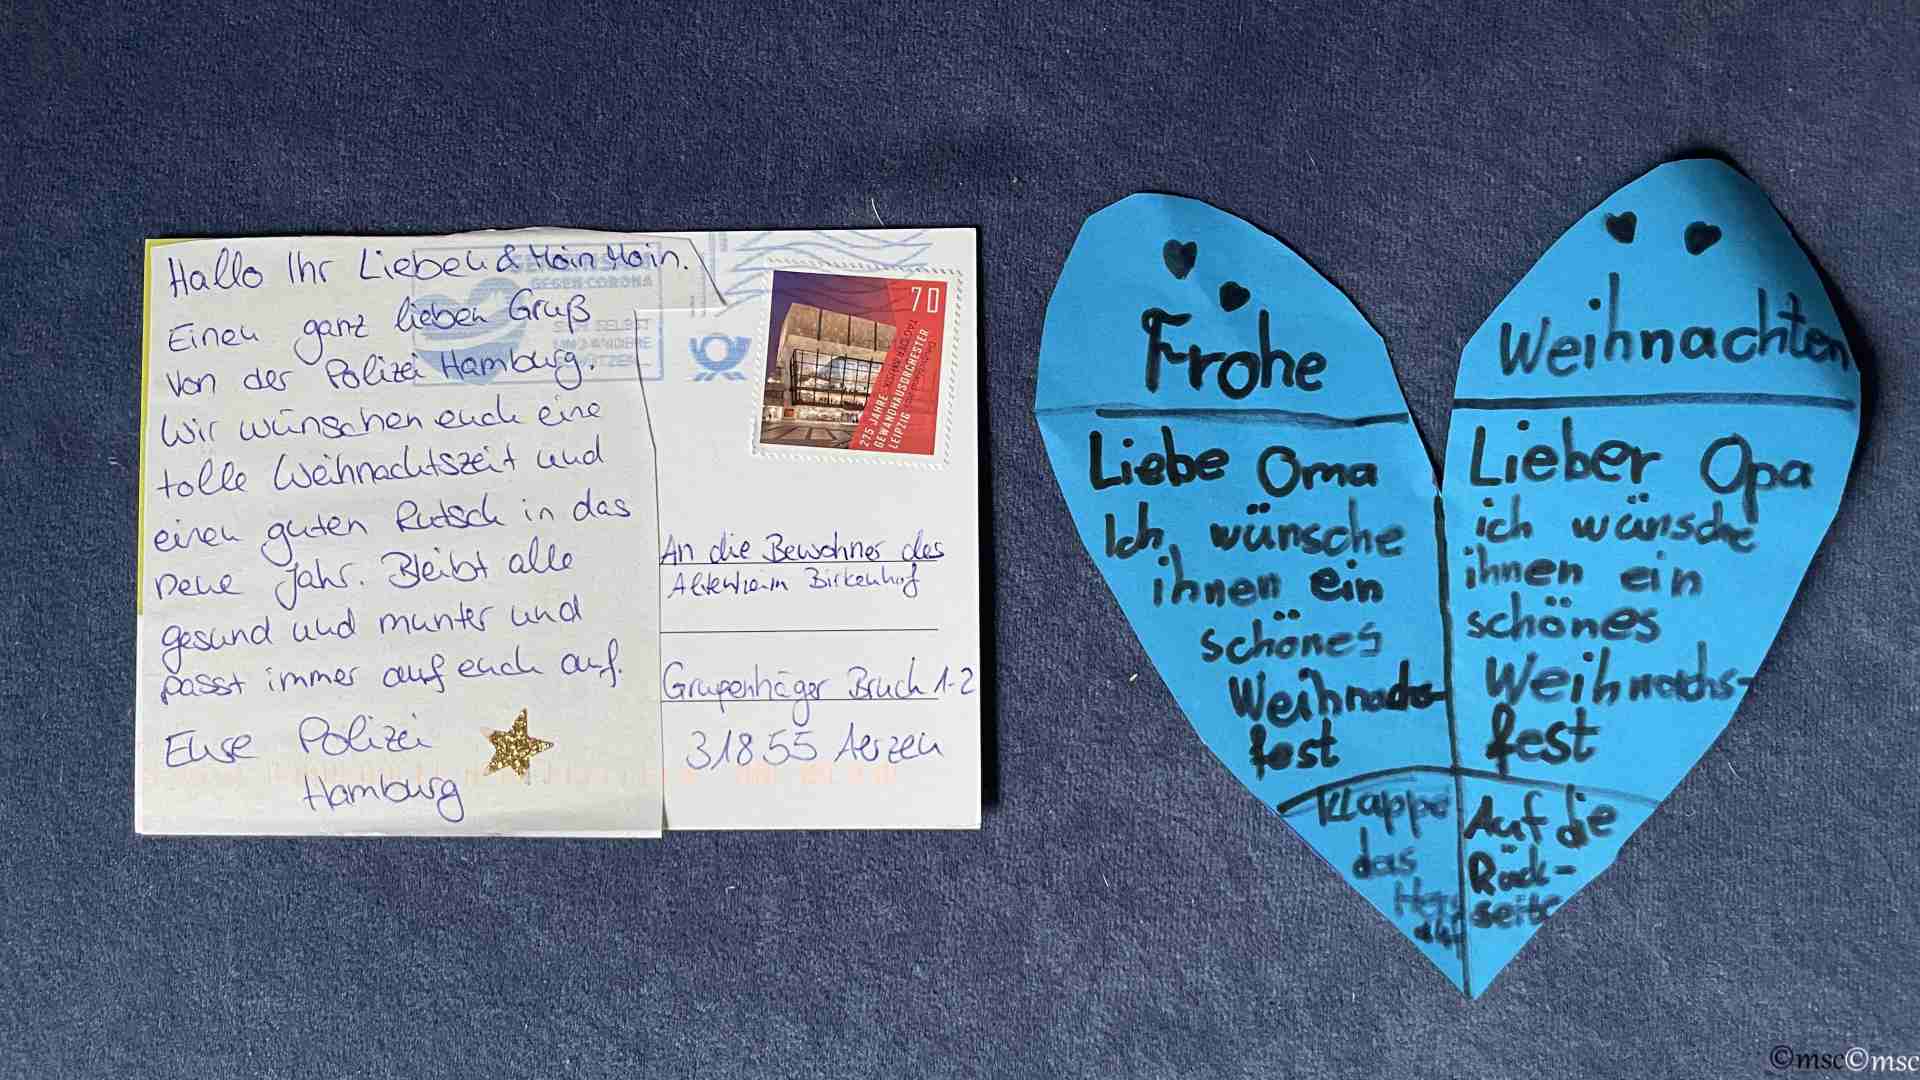 Hallo Ihr Lieben & Moin Moin.
Einen ganz lieben Gruß
von der Polizei Hamburg.
Wir wünschen euch eine
tolle Weihnachtszeit und
einen guten Rutsch in das
neue Jahr. Bleibt alle
gesund und munter und
passt immer auf euch auf.
Eure Polizei
Hamburg
GEGEN CORONA
SICH SELBST
UND ANDERE
SCHÜTZEN
70
275 JAHRE
GEWANDHAUSORCHESTER
LEIPZIG
An die Bewohner des
Altenheim Birkenhof
Grupenhäger Bruch 1-2
31855 Aerzen
Frohe
Liebe Oma
Ich wünsche
ihnen ein
schönes
Weihnachs-
fest
Klappe
das
Herz
auf
Weihnachten
Lieber Opa
ich wünsche
ihnen ein
schönes
Weihnachs-
fest
Auf die
Rück-
seite
©msc©msc